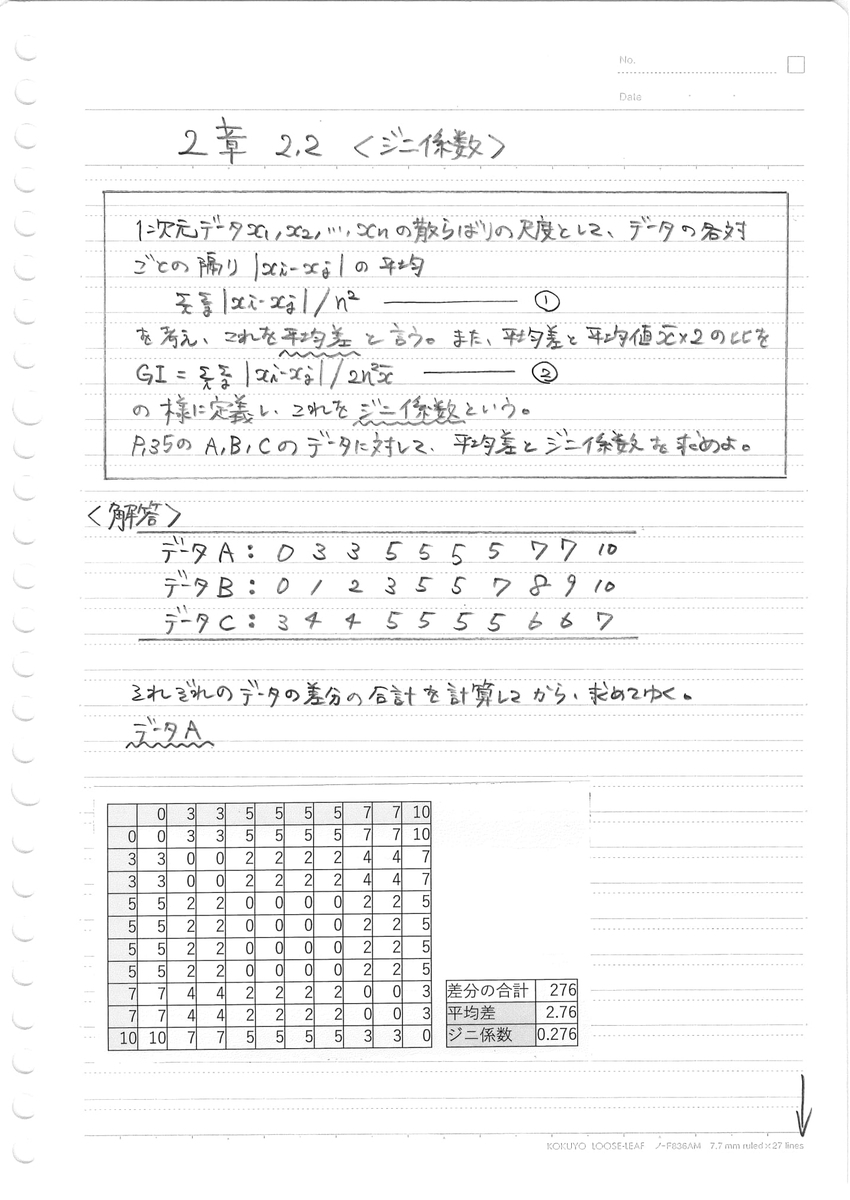 No.
Date
2章 2.2 〈ジニ係数〉
1次元データx1, x2, …, xnの散らばりの尺度として、データの各対
ごとの隔り |xi-xj| の平均
ΣiΣj |xi-xj| / n² ①
を考え、これを平均差と言う。また、平均差と平均値x̄×2の比を
GI = ΣiΣj |xi-xj| / 2n²x̄ ②
の様に定義し、これをジニ係数という。
P.35のA,B,Cのデータに対して、平均差とジニ係数を求めよ。
〈解答〉
データA: 0 3 3 5 5 5 5 7 7 10
データB: 0 1 2 3 5 5 7 8 9 10
データC: 3 4 4 5 5 5 5 6 6 7
それぞれのデータの差分の合計を計算してから、求めてゆく。
データA
0 3 3 5 5 5 5 7 7 10
0 0 3 3 5 5 5 5 7 7 10
3 3 0 0 2 2 2 2 4 4 7
3 3 0 0 2 2 2 2 4 4 7
5 5 2 2 0 0 0 0 2 2 5
5 5 2 2 0 0 0 0 2 2 5
5 5 2 2 0 0 0 0 2 2 5
5 5 2 2 0 0 0 0 2 2 5
7 7 4 4 2 2 2 2 0 0 3
7 7 4 4 2 2 2 2 0 0 3
10 10 7 7 5 5 5 5 3 3 0
差分の合計 276
平均差 2.76
ジニ係数 0.276
KOKUYO LOOSE-LEAF ノ-F836AM 7.7 mm ruled×27 lines